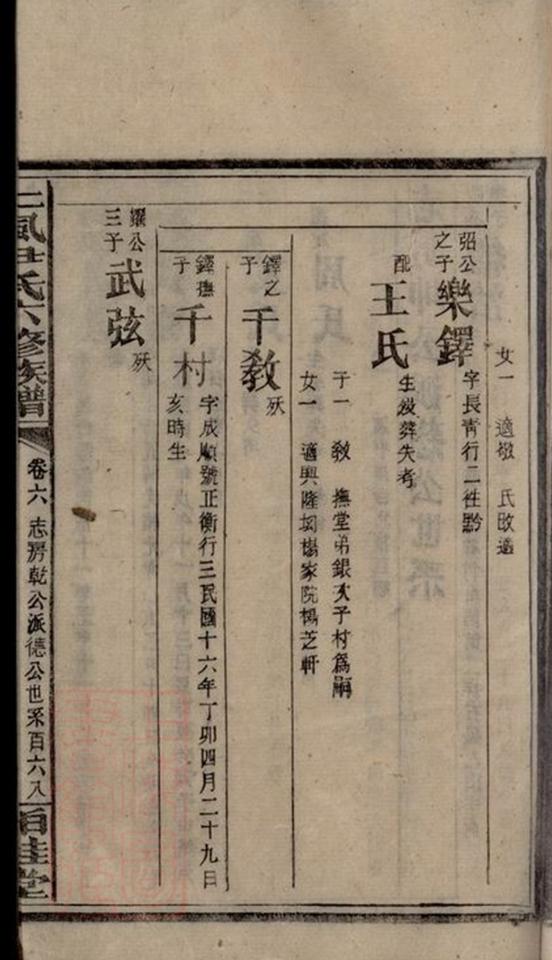 女一 適楊 氏改適
弨公之子 樂鐸 字長青行二往黔
配 王氏 生歿葬失考
子一 敎 撫堂弟銀次子村爲嗣
女一 適興隆坳楊家院楊芝軒
鐸之子 千敎 殀
鐸撫子 千村 字成順號正衡行三民國十六年丁卯四月二十九日
亥時生
公三子 武弦 殀
風尹氏六修族譜 卷六 志房乾公派德公世系百六八 百桂堂